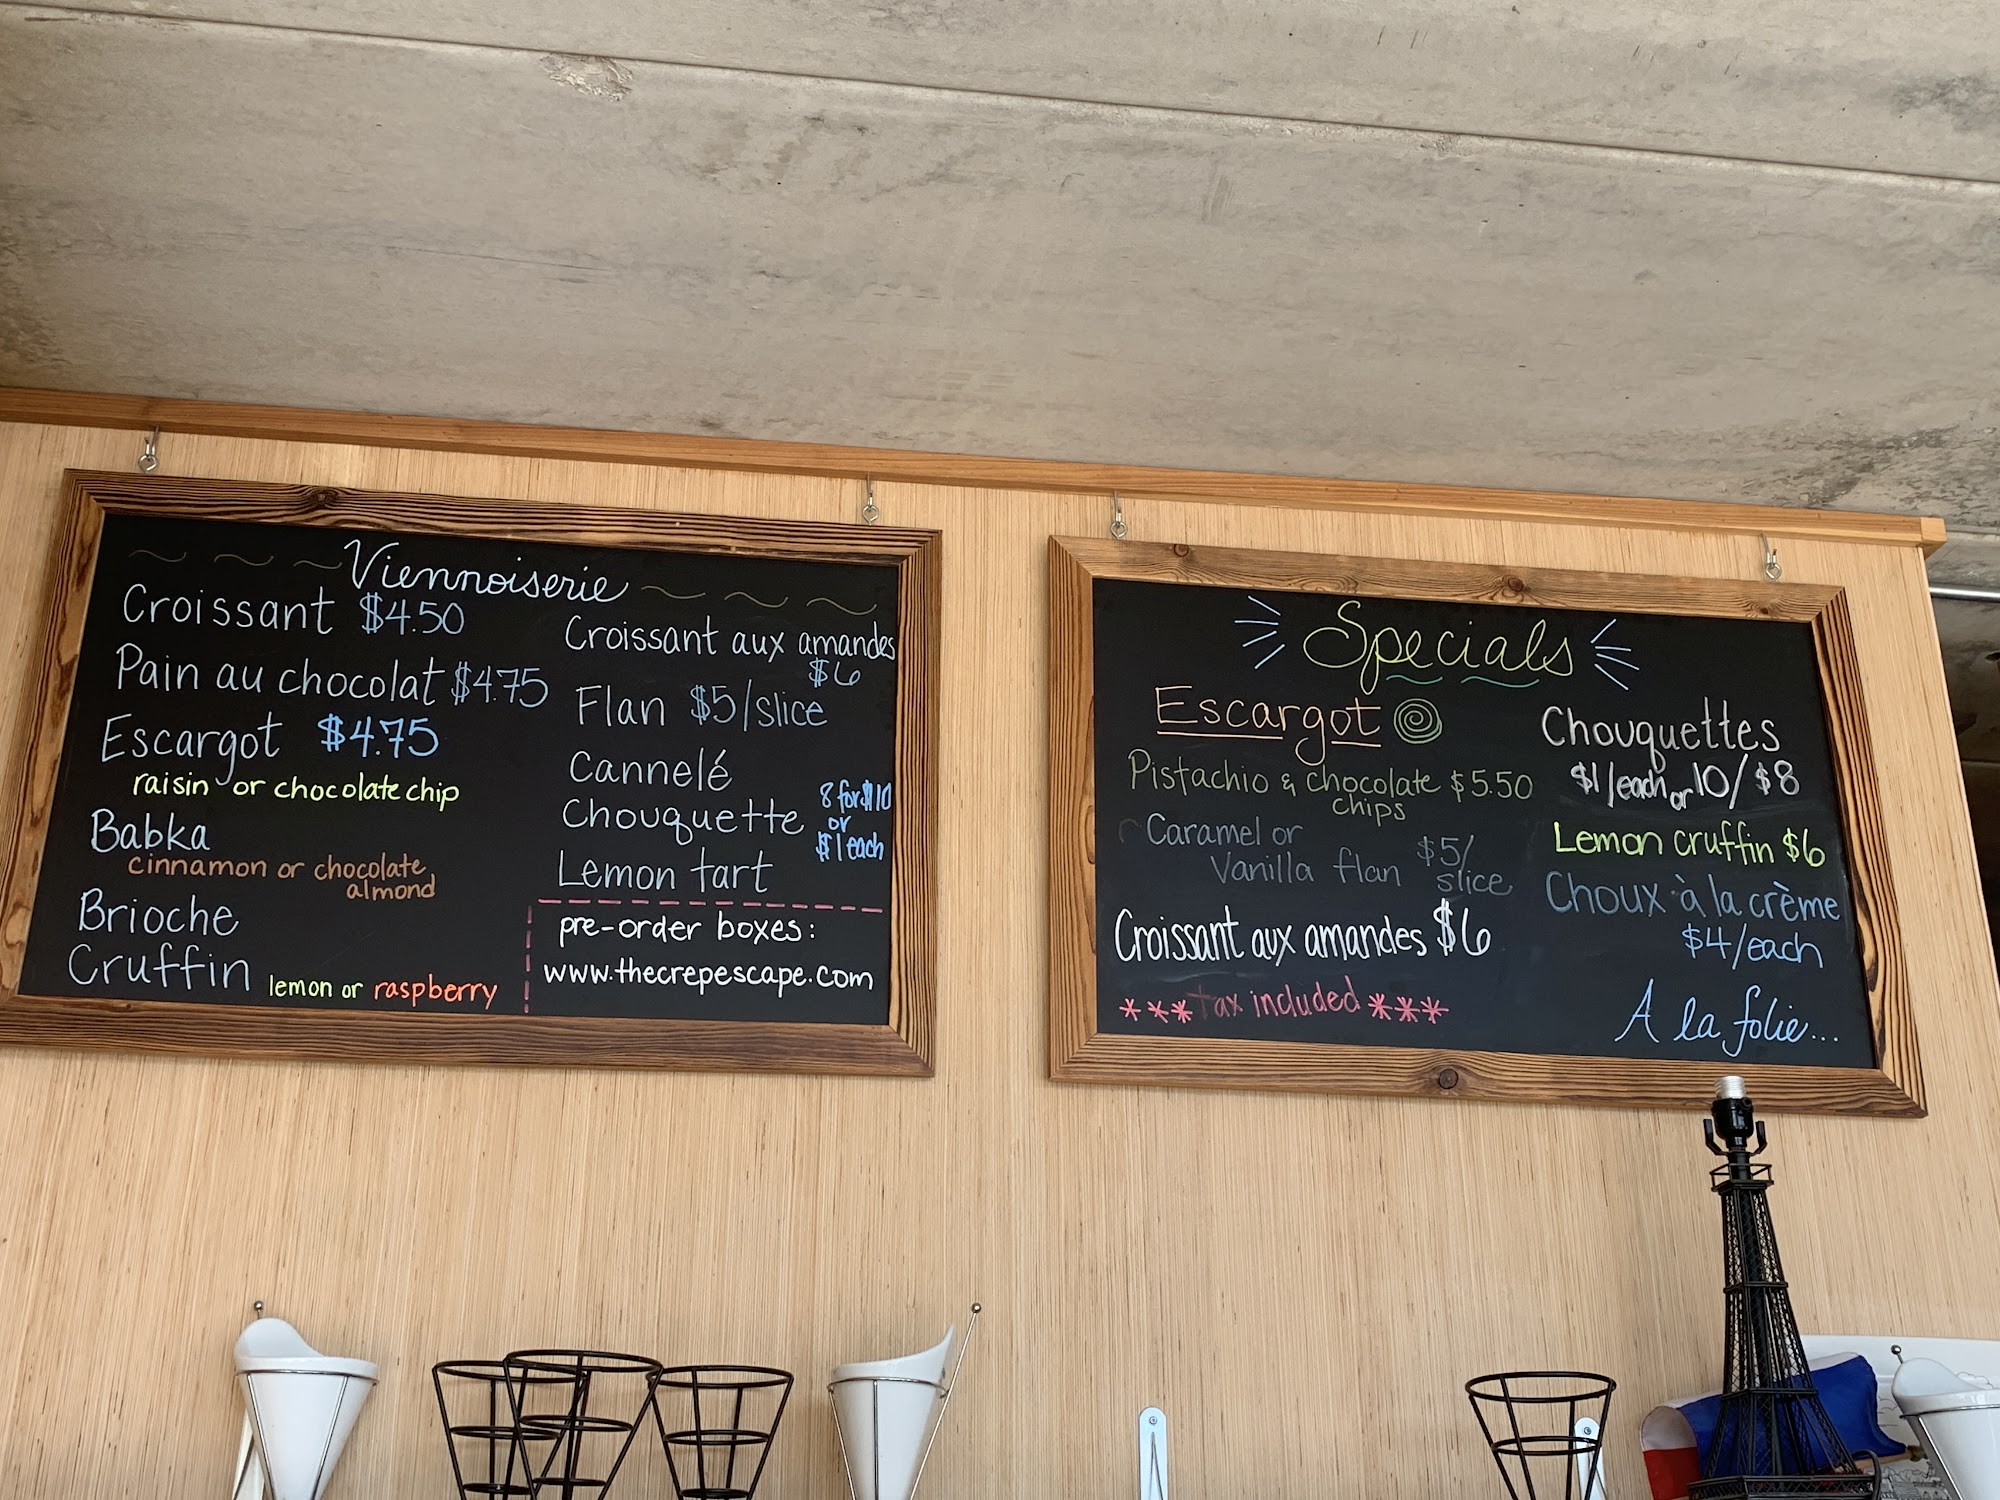 Viennoiserie
Croissant $4.50
Pain au chocolat $4.75
Escargot $4.75
raisin or chocolate chip
Babka
cinnamon or chocolate
almond
Brioche
Cruffin lemon or raspberry
Croissant aux amandes
$6
Flan $5/slice
Cannelé
Chouquette 8 for $10
or
$1 each
Lemon tart
pre-order boxes:
www.thecrepescape.com
Specials
Escargot
Pistachio & chocolate $5.50
chips
Caramel or
Vanilla flan $5/
slice
Croissant aux amandes $6
*** tax included ***
Chouquettes
$1/each or 10/$8
Lemon cruffin $6
Choux à la crème
$4/each
A la folie...